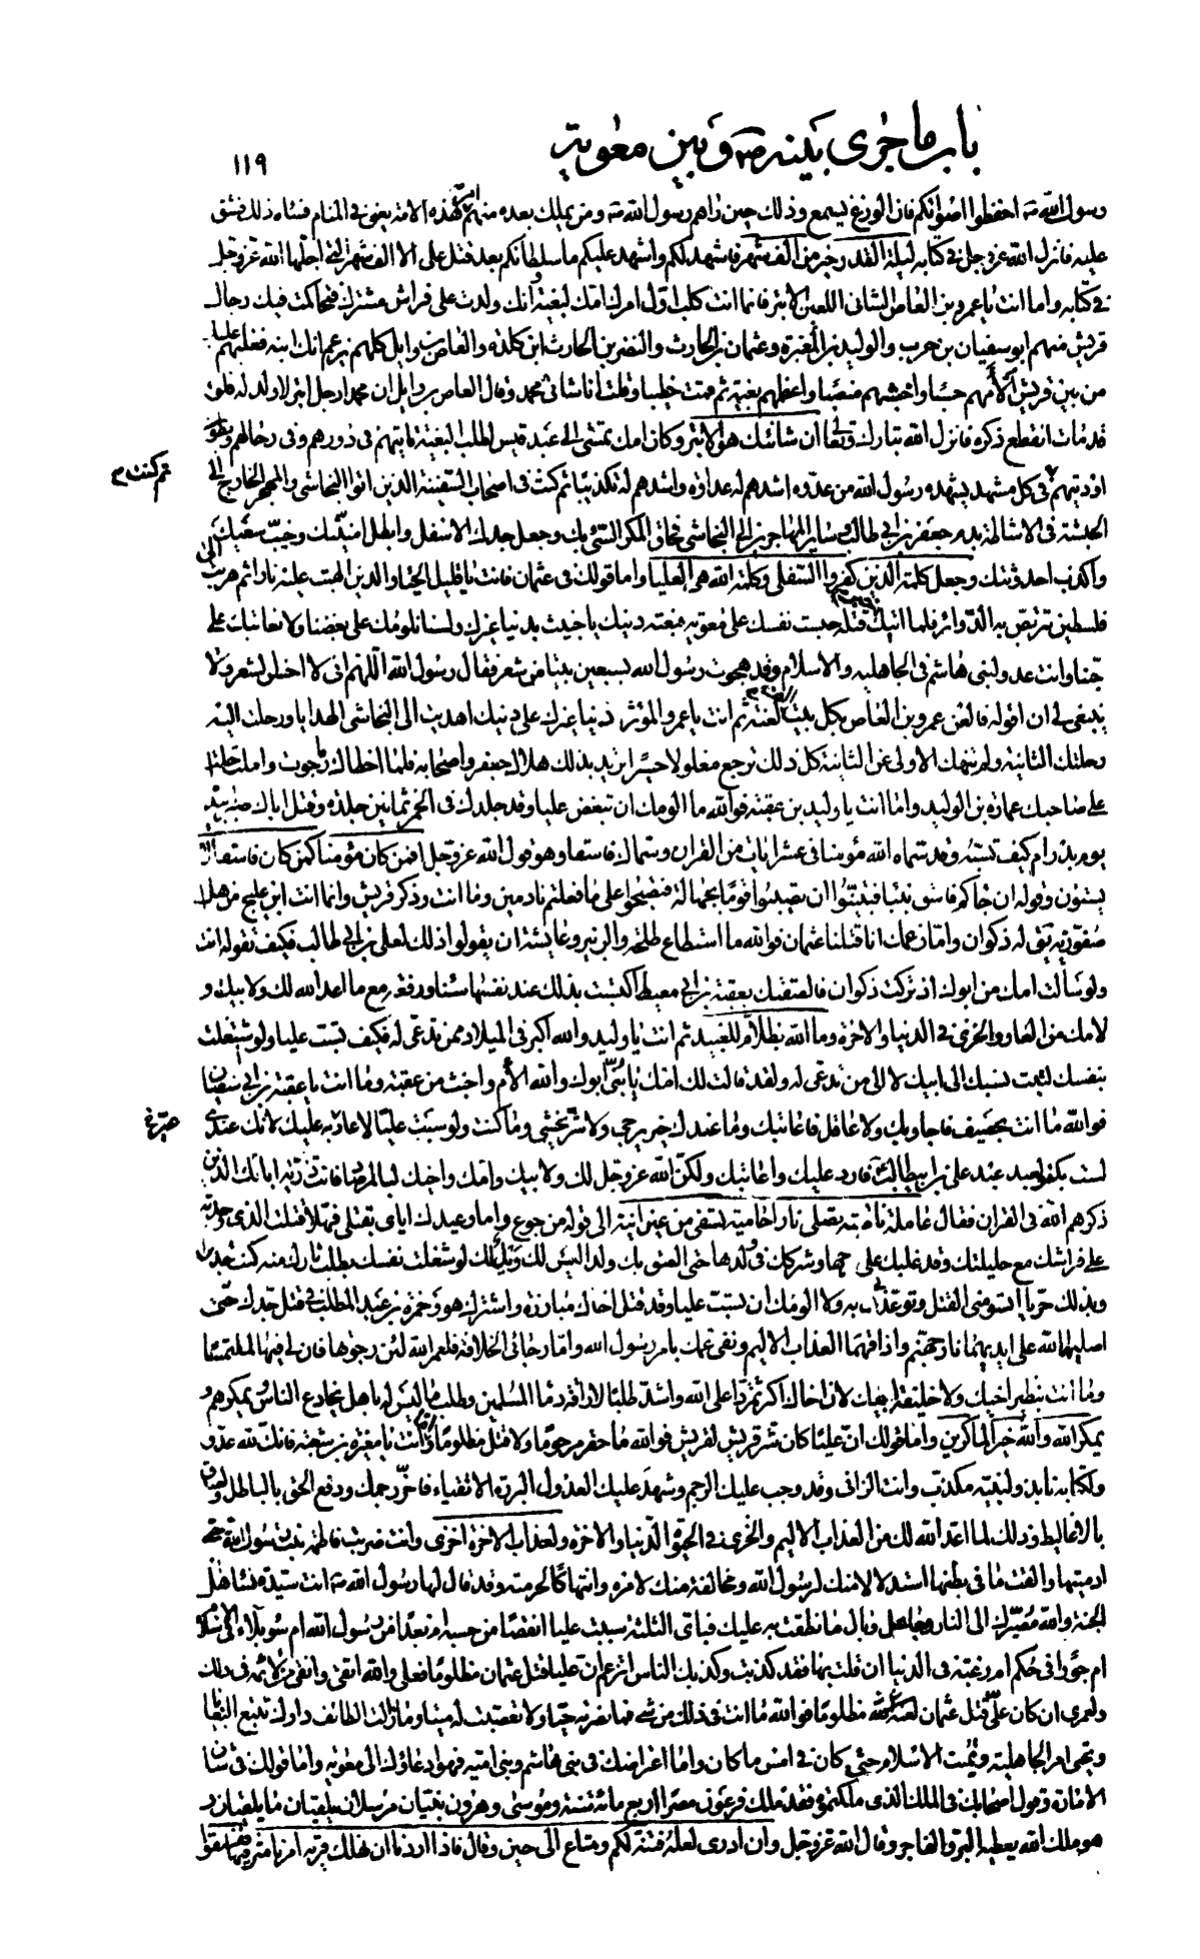 باب ما جرى بينه ص وبين معوية
١١٩
رسول الله ص احفظوا اصواتكم فان الوزغ يسمع وذلك حين راهم رسول الله ص ومن يملك بعده منهم امر هذه الامة يعنى فى المنام فساءه ذلك وشق
عليه فانزل الله عز وجل فى كتابه ليلة القدر خير من الف شهر فاشهد لكم واشهد عليكم ما سلطانكم بعد قتل على الا الف شهر التى اجلها الله عز وجل
فى كتابه واما انت يا عمرو بن العاص الشانى اللعين الابتر فانما انت كلب اول امرك امك لبغية وانك ولدت على فراش مشترك فتحاكمت فيك رجال
قريش منهم ابو سفيان بن حرب والوليد بن المغيرة وعثمان بن الحارث والنضر بن الحارث ابن كلدة والعاص بن وايل كلهم يزعم انك ابنه فغلبهم عليك
من بين قريش الأمهم حسبا واخبثهم منصبا واعظمهم بغية ثم قمت خطيبا وقلت انا شانئ محمد وقال العاص بن وايل ان محمدا رجل ابتر لا ولد له فلو
قد مات انقطع ذكره فانزل الله تبارك وتعالى ان شانئك هو الابتر وكان امك تمشى الى عبد قيس لطلب البغية تاتيهم فى دورهم وفى رحالهم وبطون
اوديتهم ثم كنت فى كل مشهد يشهده رسول الله من عدوه اشدهم له عداوة واشدهم له تكذيبا ثم كنت فى اصحاب السفينة الذين اتوا النجاشى والمهجر الخارج الى
الحبشة فى الاشاطة بدم جعفر بن ابى طالب وساير المهاجرين الى النجاشى فحاق المكر السئ بك وجعل جدك الاسفل وابطل امنيتك وخيب سعيك
واكذب احدوثتك وجعل كلمة الذين كفروا السفلى وكلمة الله هى العليا واما قولك فى عثمان فانت يا قليل الحياء والدين الهبت عليه نارا ثم هربت الى
فلسطين تتربص به الدوائر فلما اتتك قتله حبست نفسك على معوية فبعته دينك يا خبيث بدنيا غيرك ولسنا نلومك على بغضنا ولا نعاتبك على
حبنا وانت عدو لبنى هاشم فى الجاهلية والاسلام وقد هجوت رسول الله بسبعين بيتا من شعر فقال رسول الله اللهم انى لا احسن الشعر ولا
ينبغى لى ان اقوله فالعن عمرو بن العاص بكل بيت لعنة ثم انت يا عمرو المؤثر دنيا غيرك على دينك اهديت الى النجاشى الهدايا ورحلت اليه
رحلتك الثانية ولم تنهك الاولى عن الثانية كل ذلك ترجع مغلولا حسيرا تريد بذلك هلاك جعفر واصحابه فلما اخطاك ما رجوت واملت احلت
على صاحبك عمارة بن الوليد واما انت يا وليد بن عقبة فوالله ما الومك ان تبغض عليا وقد جلدك فى الخمر ثمانين جلدة وقتل اباك صبرا بيده
يوم بدر ام كيف تسبه وقد سماه الله مؤمنا فى عشر ايات من القران وسماك فاسقا وهو قول الله عز وجل افمن كان مؤمنا كمن كان فاسقا لا
يستوون وقوله ان جاءكم فاسق بنبا فتبينوا ان تصيبوا قوما بجهالة فتصبحوا على ما فعلتم نادمين وما انت وذكر قريش وانما انت ابن علج من اهل
صفورية يق له ذكوان واما زعمك انا قتلنا عثمان فوالله ما استطاع طلحة والزبير وعايشة ان يقولوا ذلك لعلى بن ابى طالب فكيف تقوله انت
ولو سألت امك من ابوك اذ تركت ذكوان فالصقتك بعقبة بن ابى معيط اكتست بذلك عند نفسها سناء ورفعة مع ما اعد الله لك ولابيك و
لامك من العار والخزى فى الدنيا والاخرة وما الله بظلام للعبيد ثم انت يا وليد والله اكبر فى الميلاد ممن تدعى له فكيف تسب عليا ولو شغلت
بنفسك لتثبت نسبك الى ابيك لا الى من تدعى له ولقد قالت لك امك يا بنى ابوك والله الأم واخبث من عقبة وما انت يا عتبة بن ابى سفيان
فوالله ما انت بحصيف فاجاوبك ولا عاقل فاعاتبك وما عندك خير يرجى ولا شر يخشى وما كنت ولو سببت عليا لاعار به عليك لانك عندى
لست بكفو لعبد عبد على بن ابيطالب فارد عليك واعاتبك ولكن الله عز وجل لك ولابيك وامك واخيك لبالمرصاد فانت ذرية ابائك الذين
ذكرهم الله فى القران فقال عاملة ناصبة تصلى نارا حامية تسقى من عين انية الى قوله من جوع واما وعيدك اياى بقتلى فهلا قتلت الذى وجدته
على فراشك مع حليلتك وقد غلبك على فرجها وشركك فى ولدها حتى الصق بك ولدا ليس لك ويلك لو شغلت نفسك بطلب ثارك منه كنت جديرا
وبذلك حريا اذ تسومنى القتل وتوعدنى به ولا الومك ان تسب عليا وقد قتل اخاك مبارزة واشترك هو وحمزة بن عبد المطلب فى قتل جدك حتى
اصليهما الله على ايديهما نار جهنم واذاقهما العذاب الاليم ونفى عمك بامر رسول الله واما رجائى الخلافة فلعمر الله لئن رجوتها فان لى فيها لملتمسا
وما انت بنظير اخيك ولا خليفة ابيك لان اخاك اكثر تمردا على الله واشد طلبا لاراقة دماء المسلمين وطلب ما ليس له باهل يخادع الناس ويمكرهم و
يمكر الله والله خير الماكرين واما قولك ان عليا كان شر قريش لقريش فوالله ما حقر مرحوما ولا قتل مظلوما واما انت يا مغيرة بن شعبة فانك لله عدو
ولكتابه نابذ ولنبيه مكذب وانت الزانى وقد وجب عليك الرجم وشهد عليك العدول البررة الاتقياء فاخر رجمك ودفع الحق بالباطل والصدق
بالاغاليط وذلك لما اعد الله لك من العذاب الاليم والخزى فى الحيوة الدنيا والاخرة ولعذاب الاخرة اخزى وانت ضربت فاطمة بنت رسول الله ص حتى
ادميتها والقت ما فى بطنها استذلالا منك لرسول الله ومخالفة منك لامره وانتهاكا لحرمته وقد قال لها رسول الله ص انت سيدة نساء اهل
الجنة والله مصيرك الى النار وجاعل وبال ما نطقت به عليك فباى الثلثة سببت عليا انقصا من حسبه ام بعدا من رسول الله ام سوء بلاء فى الاسلام
ام جورا فى حكم ام رغبة فى الدنيا ان قلت بها فقد كذبت وكذبك الناس اتزعم ان عليا قتل عثمان مظلوما فعلى والله اتقى وانقى من لائمه فى ذلك
ولعمرى ان كان على قتل عثمان مظلوما فوالله ما انت فى ذلك من شئ فما نصرته حيا ولا تعصبت له ميتا وما زالت الطائف دارك تتبع البغايا
وتحيى امر الجاهلية وتميت الاسلام حتى كان فى امس ما كان واما اعتراضك فى بنى هاشم وبنى امية فهو ادعاؤك الى معوية واما قولك فى شان
الامارة وقول اصحابك فى الملك الذى ملكتموه فقد ملك فرعون مصرا اربع مائة سنة وموسى وهرون نبيان مرسلان يلقيان ما يلقيان و
هو ملك الله يعطيه البر والفاجر وقال الله عز وجل وان ادرى لعله فتنة لكم ومتاع الى حين وقال فاذا اردنا ان نهلك قرية امرنا مترفيها ففسقوا
ثم كنت م